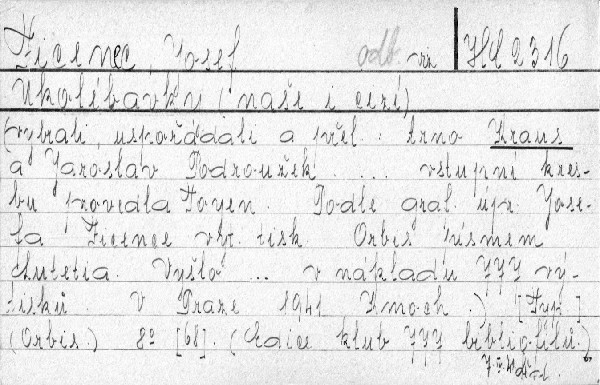 Ficenec, Josef odb. viz HH 2316
Ukolébavky (naše i cizí)
(vybrali, uspořádali a přel.: Arno Kraus
a Jaroslav Podroužek ... vstupní kres-
bu provedla Toyen. Podle graf. úpr. Jose-
fa Ficence vyt. tisk. Orbis písmem
Lutetia. Vyšlo ... v nákladu 777 vý-
tisků. V Praze 1941 Kmoch.) [Typ.]
(Orbis.) 8° [68]. (Edice klub 777 bibliofilů.) 6